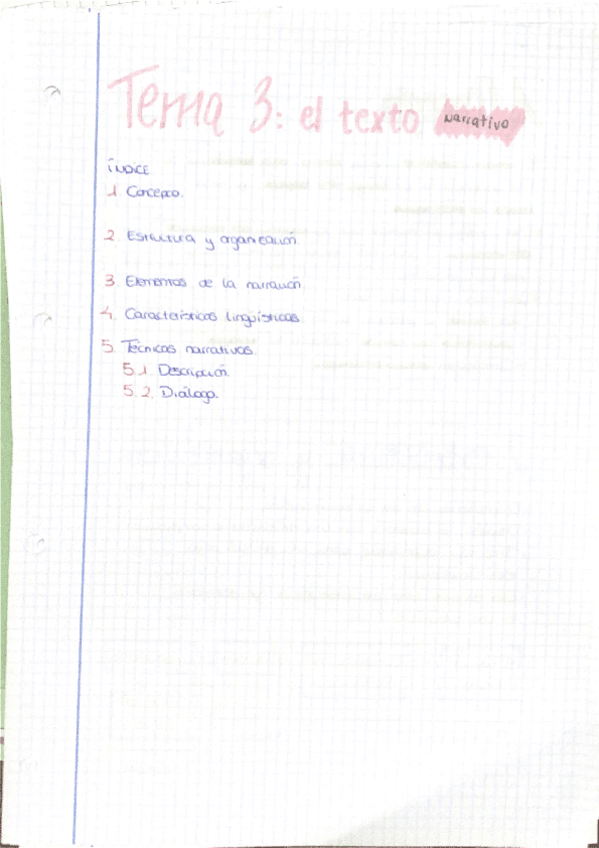 Tema 3: el texto narrativo
ÍNDICE
1. Concepto.
2. Estructura y organización.
3. Elementos de la narración.
4. Características lingüísticas.
5. Técnicas narrativas.
5.1. Descripción.
5.2. Diálogo.